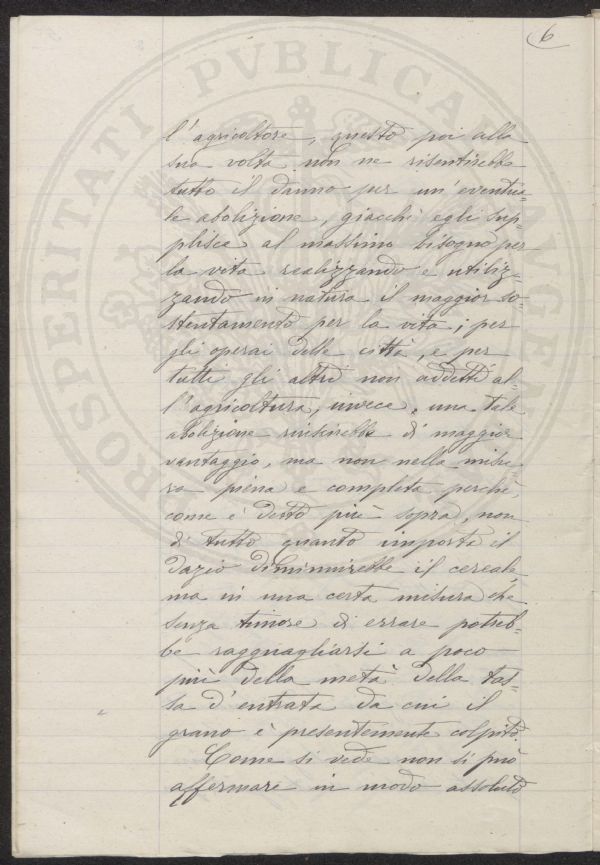 6
l'agricoltore, questo poi alla
sua volta non ne risentirebbe
tutto il danno per un'eventua-
le abolizione, giacchè egli sup-
plisce al massimo bisogno per
la vita realizzando e utiliz-
zando in natura il maggior so-
stentamento per la vita; per
gli operai delle città, e per
tutti gli altri non addetti al-
l'agricoltura, invece, una tale
abolizione riuscirebbe di maggior
vantaggio, ma non nella misu
ra piena e completa, perchè,
come è detto più sopra, non
di tutto quanto importa il
dazio diminuirebbe il cereale,
ma in una certa misura che
senza timore di errare potreb-
be ragguagliarsi a poco
più della metà della tas-
sa d'entrata da cui il
grano è presentemente colpito.
Come si vede non si può
affermare in modo assoluto
PROSPERITATI PVBLICAE AVGENDAE